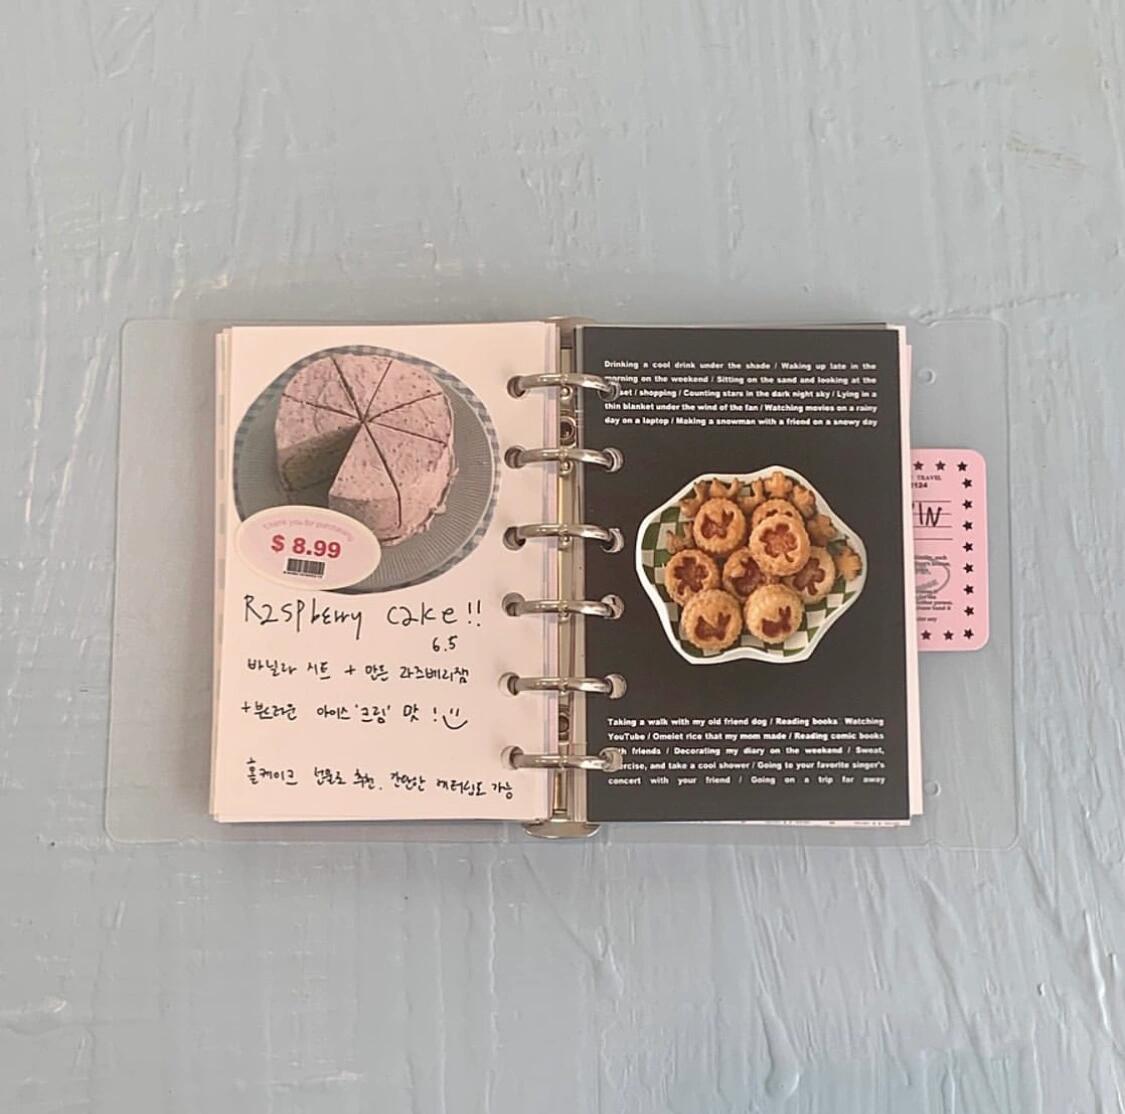 Thank you for purchasing
$ 8.99
Raspberry cake!!
6.5
바닐라 시트 + 만든 라즈베리잼
+부드러운 아이스'크림' 맛 !
홀케이크 선물로 추천. 간단한 레터링도 가능
Drinking a cool drink under the shade / Waking up late in the
morning on the weekend / Sitting on the sand and looking at the
set / shopping / Counting stars in the dark night sky / Lying in a
thin blanket under the wind of the fan / Watching movies on a rainy
day on a laptop / Making a snowman with a friend on a snowy day
Taking a walk with my old friend dog / Reading books Watching
YouTube / Omelet rice that my mom made / Reading comic books
friends / Decorating my diary on the weekend / Sweat,
ercise, and take a cool shower / Going to your favorite singer's
concert with your friend / Going on a trip far away
TRAVEL
IN